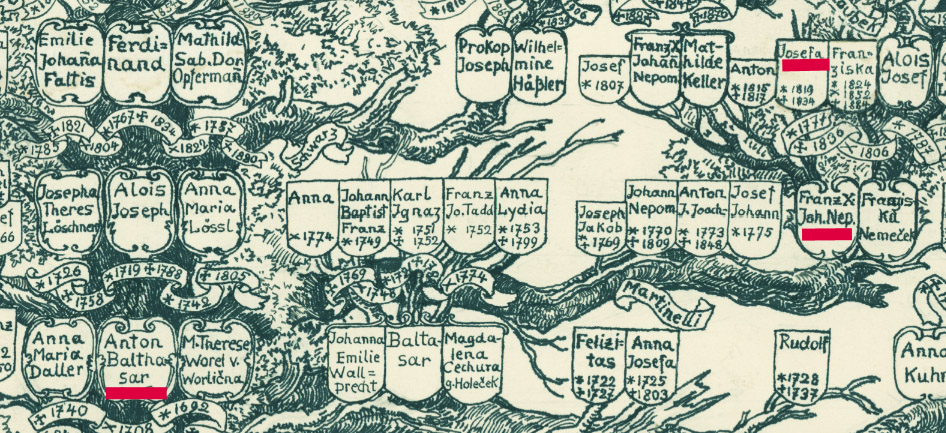 Emilie
Johana
Faltis
Ferdi=
nand
Mathild
Sab. Dor
Opferman
Prokop
Joseph
Wilhel=
mine
Häßler
Josef
*1807
Franz X
Johan
Nepom
Mat-
hilde
Keller
Anton
*1815
*1817
Josefa
*1819
*1834
Fran-
ziska
*1824
*1852
*1884
Alois
Josef
*1821
*1767 ‡1834
*1787
*1785
‡1880
‡1806
Josepha
Theres
Löschner
Alois
Joseph
Anna
Maria
Lössl
Anna
*1774
Johann
Baptist
Franz
*1749
Karl
Ignaz
*1751
‡1752
Franz
Jo. Tadd
*1752
Anna
Lydia
*1753
‡1799
Joseph
Jakob
*1769
Johann
Nepom
*1770
‡1809
Anton
J. Joach-
*1773
‡1848
Josef
Johann
*1775
Franz X.
Joh. Nep.
Franzis-
ka
Nemeček
66
*1726
‡1758
*1719 ‡1788
‡1805
*1742
1769
1774
Martinelli
Anna
Maria
Daller
Anton
Baltha
sar
M. Therese
Worel v.
Worlična
Johanna
Emilie
Wall=
precht
Balta-
sar
Magda-
lena
Cechura
g. Holeček
Felizi-
tas
*1722
‡1727
Anna
Josefa
*1725
‡1803
Rudolf
*1728
‡1737
Anna
Kuhn
‡1740
*1692